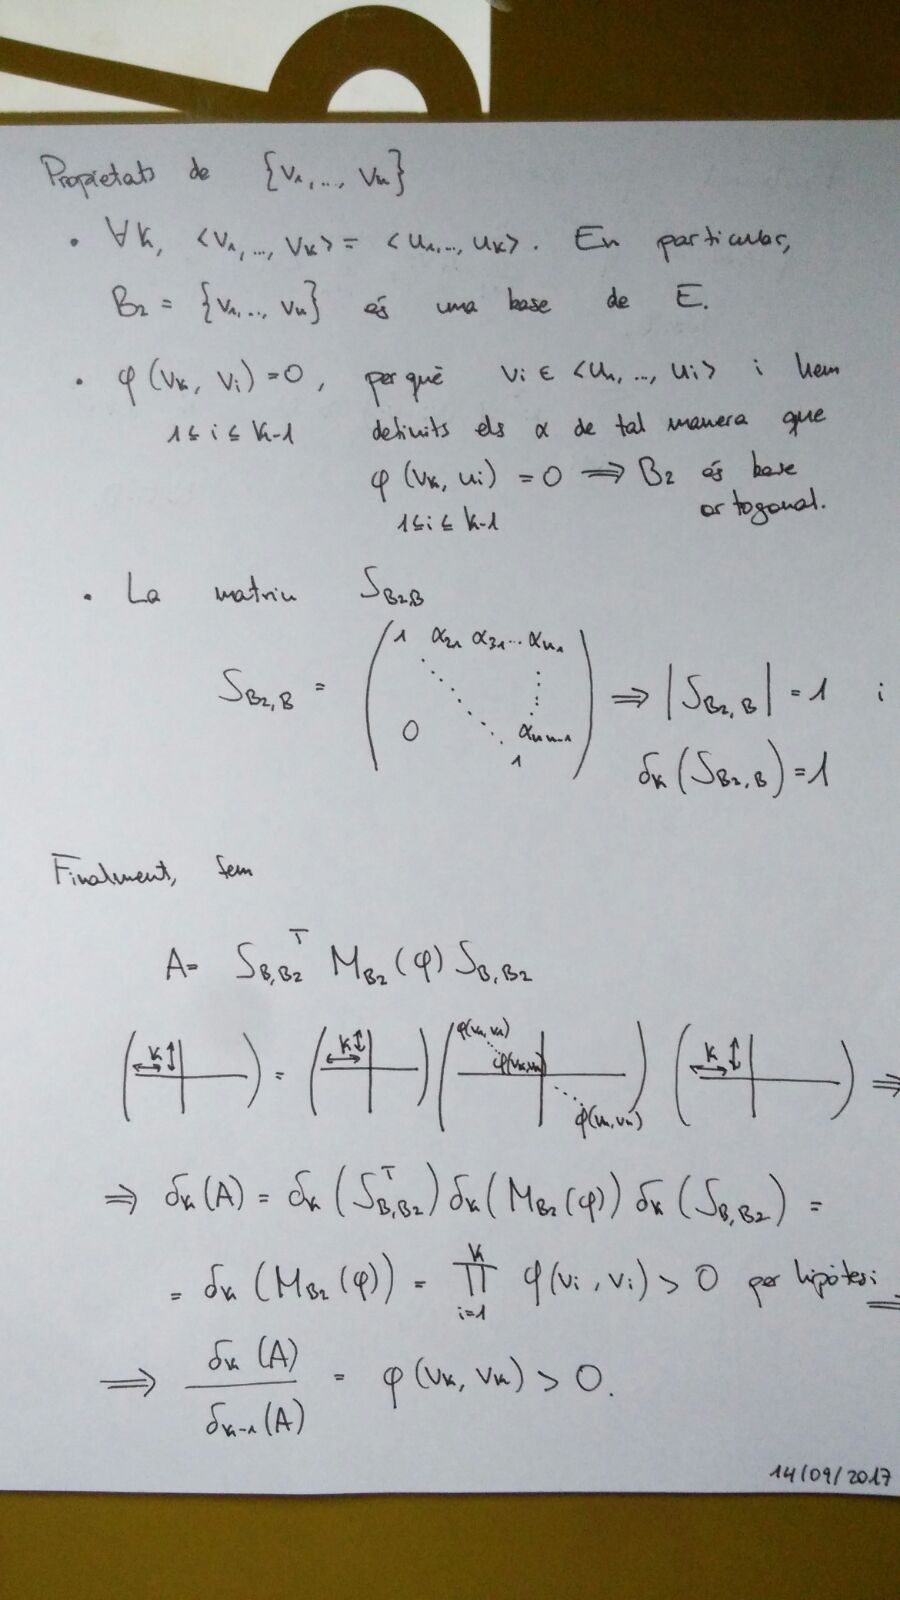 Propietats de {v₁, ..., vₙ}
• ∀k, <v₁, ..., vₖ> = <u₁, ..., uₖ>. En particular,
B₂ = {v₁, ..., vₙ} és una base de E.
• φ(vₖ, vᵢ) = 0, perquè vᵢ ∈ <u₁, ..., uᵢ> i hem
1 ≤ i ≤ k-1 definits els α de tal manera que
φ(vₖ, uᵢ) = 0 ⟹ B₂ és base
1 ≤ i ≤ k-1 ortogonal.
• La matriu S_{B₂,B}
S_{B₂,B} = ( 1 α₂₁ α₃₁ ... αₙ₁ ⋱ ⋮ 0 αₙₙ₋₁ 1 ) ⟹ |S_{B₂,B}| = 1 i
δₖ(S_{B₂,B}) = 1
Finalment, fem
A = S_{B,B₂}^T M_{B₂}(φ) S_{B,B₂}
( k ) = ( k ) ( φ(v₁,v₁) ⋱ φ(vₖ,vₖ) ⋱ φ(vₙ,vₙ) ) ( k ) ⟹
⟹ δₖ(A) = δₖ(S_{B,B₂}^T) δₖ(M_{B₂}(φ)) δₖ(S_{B,B₂}) =
= δₖ(M_{B₂}(φ)) = ∏_{i=1}^{k} φ(vᵢ, vᵢ) > 0 per hipòtesi ⟹
⟹ δₖ(A) / δₖ₋₁(A) = φ(vₖ, vₖ) > 0.
14/09/2017